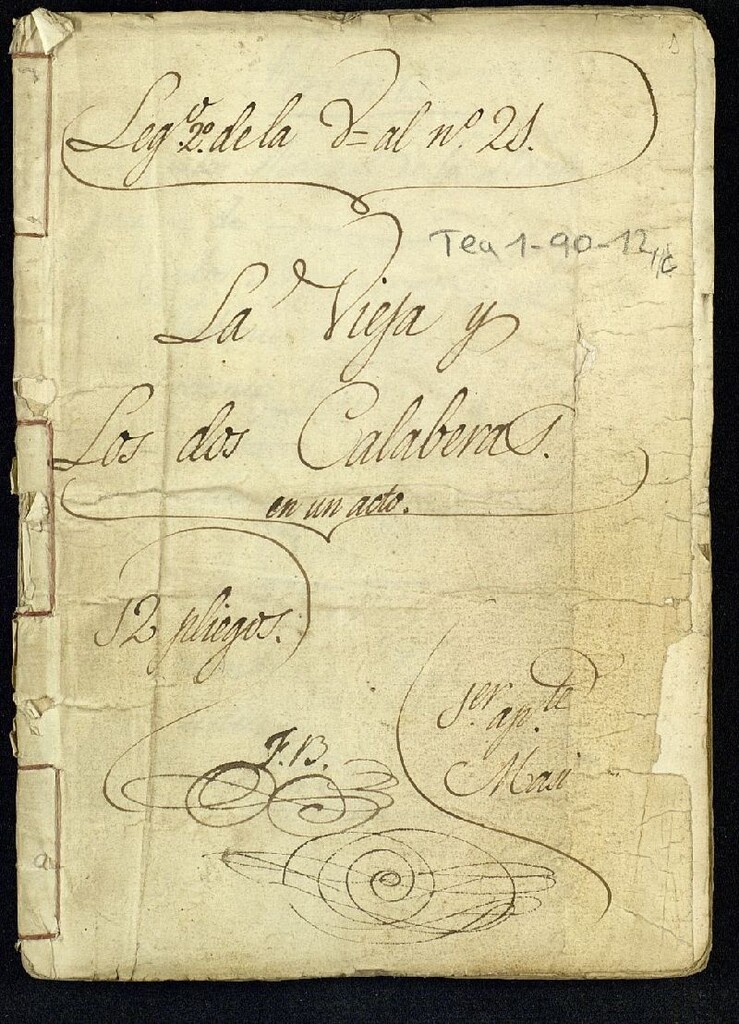 Leg.º 2º. de la D= al nº. 21.
Tea 1-90-12,
La Vieja y
Los dos Calaberas.
en un acto.
12 pliegos.
1er ap.te
F.B.
Mari